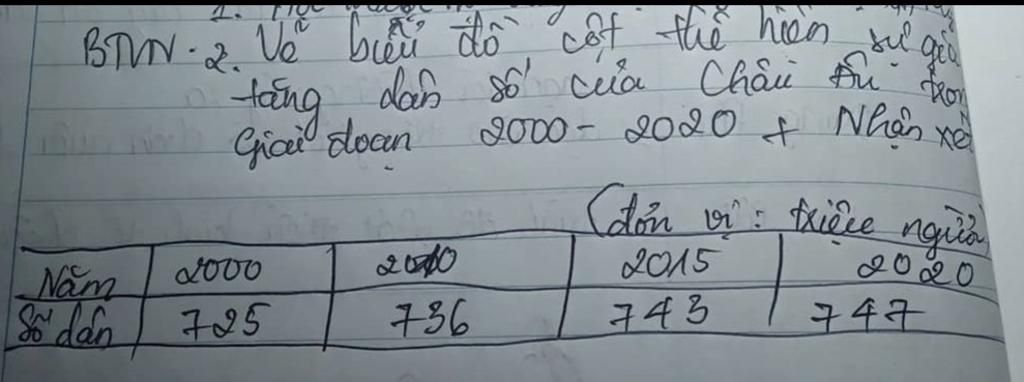 BTVN. 2. Vẽ biểu đồ cột thể hiện sự gia
tăng dân số của Châu Âu tron
Giai đoạn 2000 - 2020 + Nhận xét
(đơn vị: triệu người
Năm 2000 2010 2015 2020
Số dân 725 736 743 747